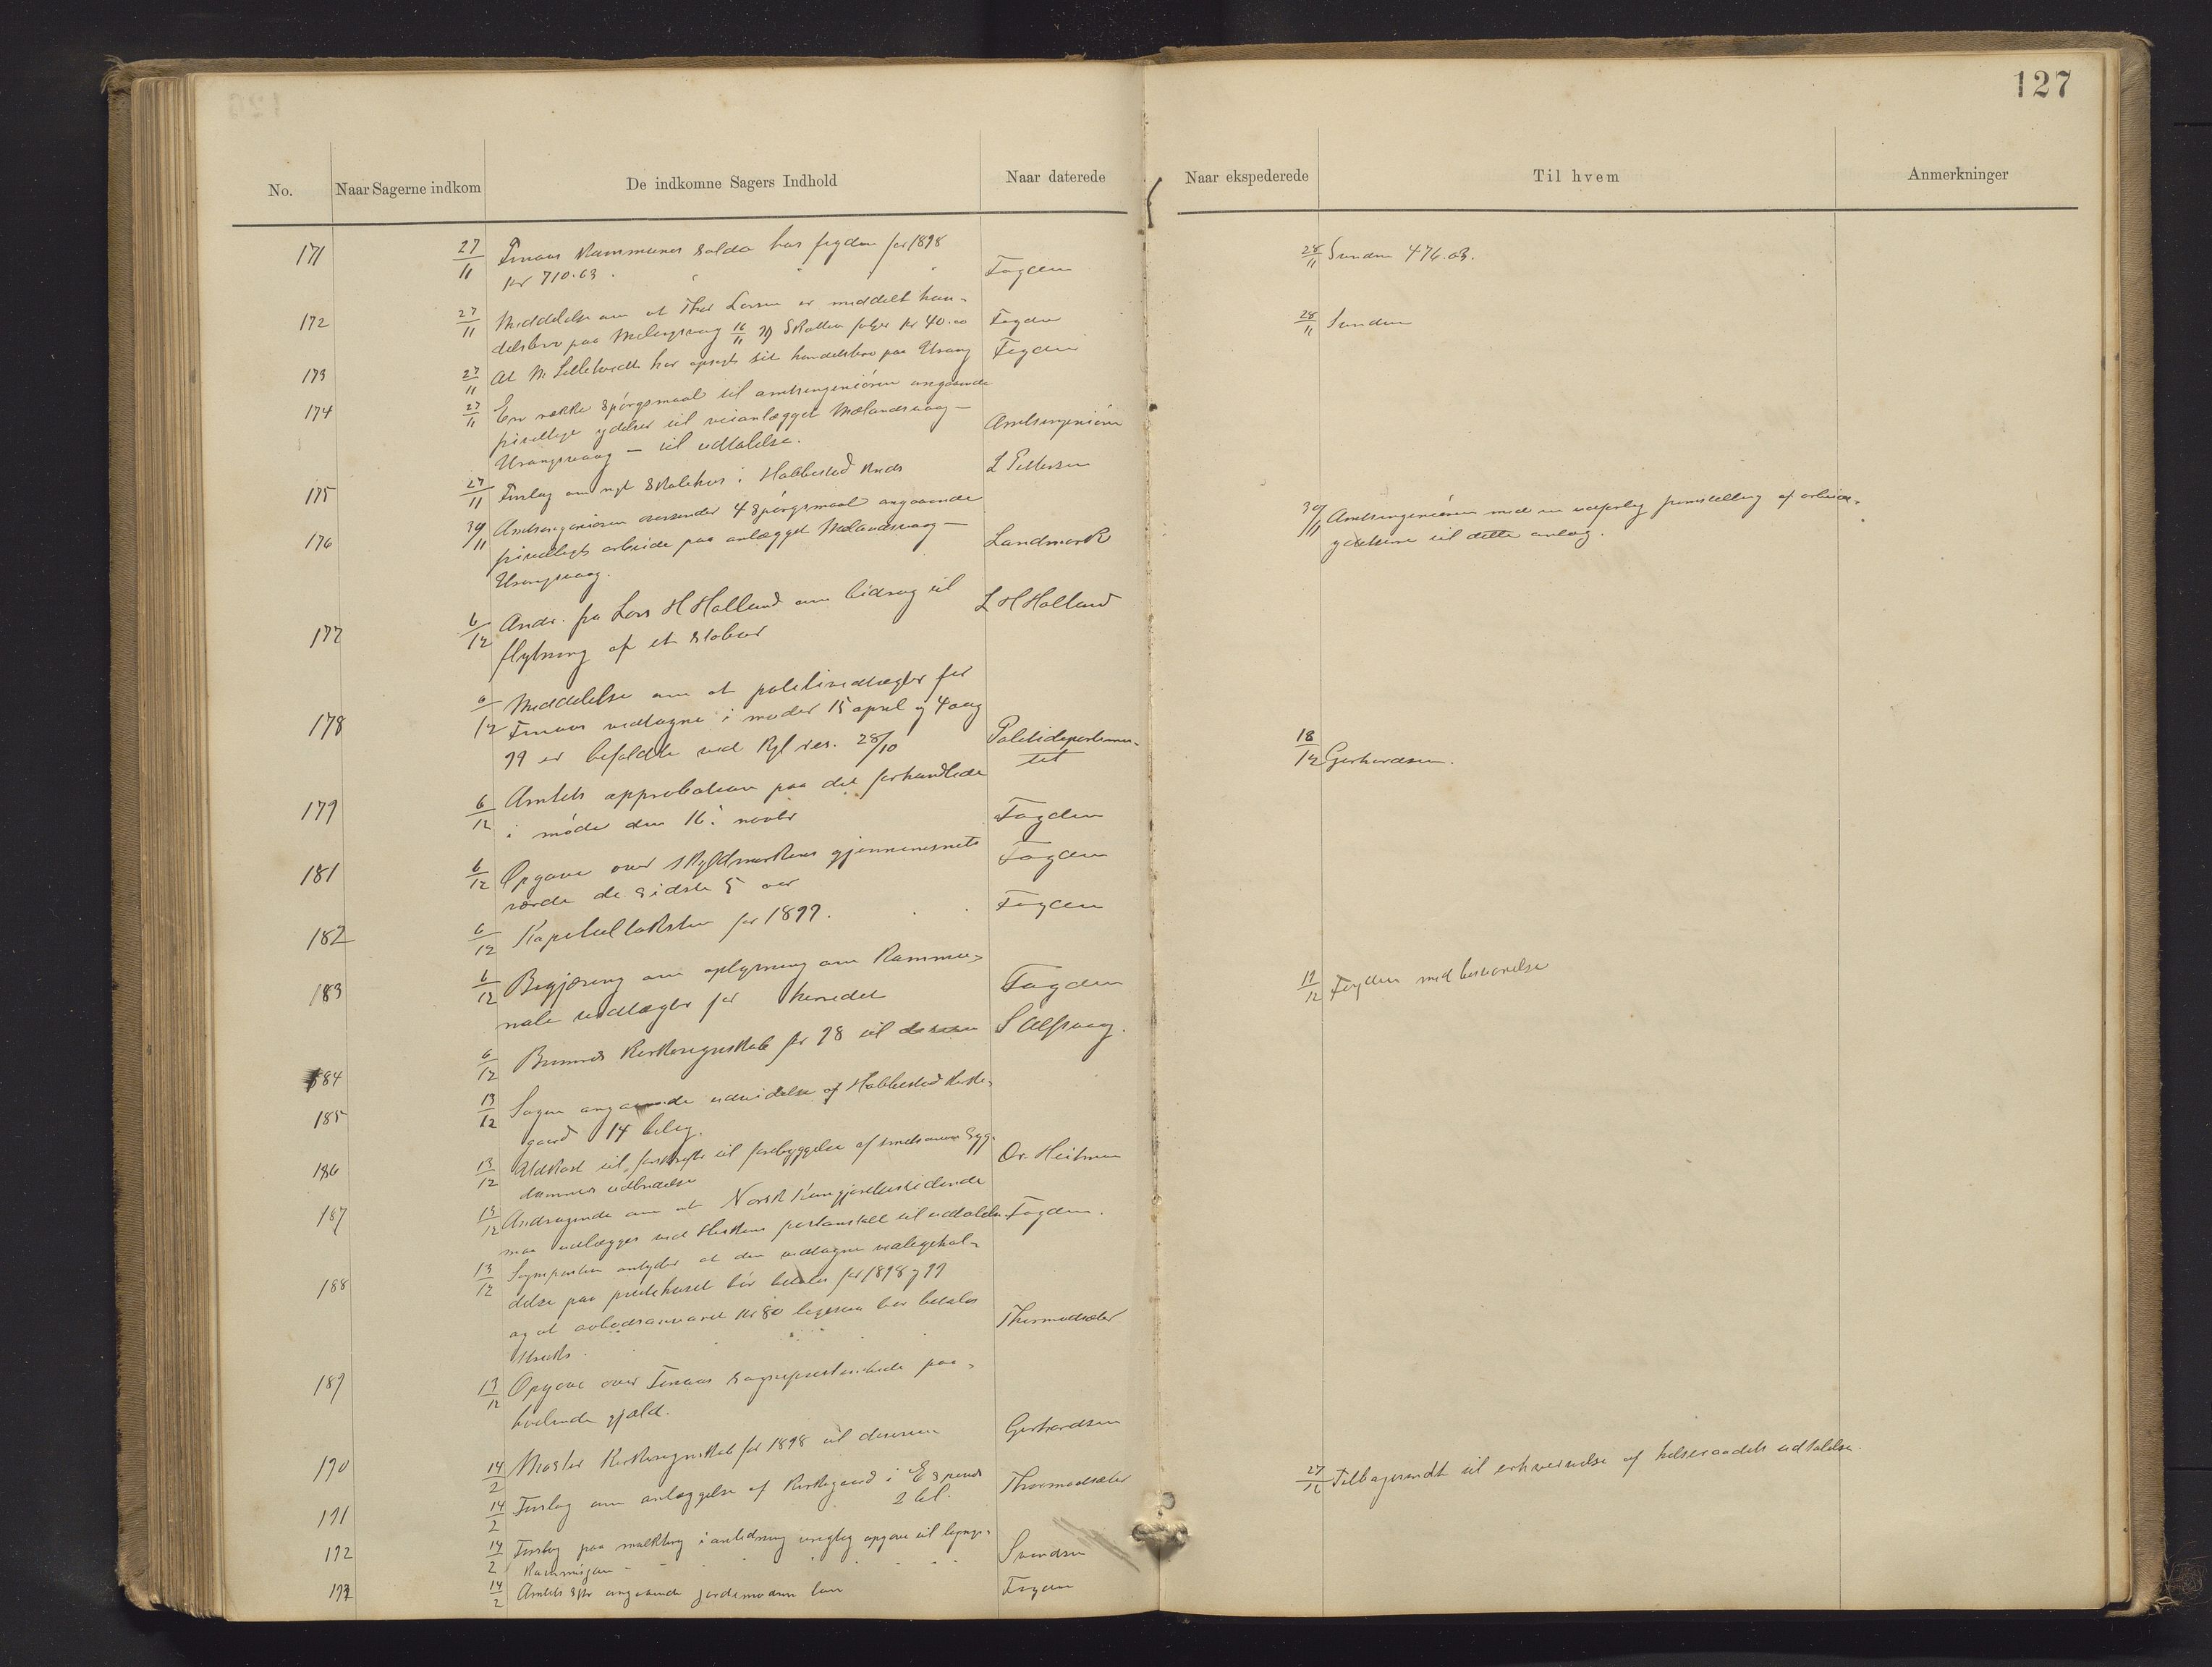 127
No.
Naar Sagerne indkom
De indkomne Sagers Indhold
Naar daterede
Naar ekspederede
Til hvem
Anmerkninger
171 27/11 Finaas Kommunes Saldo hos fogden for 1898
kr 710.63. Fogden 28/11 Svendsen 476.03.
172 27/11 Meddelelse om at Thor Larsen er meddelt han-
delsbrev paa 16/11 99 Skatten følger kr 40.00 Fogden 28/11 Svendsen
173 27/11 At M. Lilletvedt har opsagt sit handelsbrev paa Urang Fogden
174 27/11 En række Spørgsmaal til amtsingeniøren angaaende
frivillige ydelser til veianlægget Mælandsvaag -
Urangsvaag - til udtalelse. Amtsingeniøren
175 27/11 Forslag om nyt Skolehus i Habbestad Kreds L Pettersen
176 30/11 Amtsingeniøren oversender 4 Spørgsmaal angaaende
frivilligt arbeide paa anlægget Mælandsvaag -
Urangsvaag. Landmark 30/11 Amtsingeniøren med en udførlig fremstilling af arbeids-
ydelserne til dette anlæg.
177 6/12 Andr. fra Lars H Holland om bidrag til
flytning af et Stabur L H Holland
178 6/12 Meddelelse om at politivedtægter for
Finaas vedtagne i møder 15 april og 4 aug
99 er befaldte ved Kgl res. 28/10 Politidepartemen-
tet 18/12 Gerhardsen.
179 6/12 Amtets approbation paa det forhandlede
i møde den 16. novbr Fogden
181 6/12 Opgave over skyldmarkens gjennemsnits
værdi de sidste 5 aar Fogden
182 6/12 Kapiteltaksten for 1899. Fogden
183 6/12 Begjæring om oplysning om Kommu-
nale vedtægter for herredet Fogden 11/12 Fogden med besvarelse
184 6/12 Bremnes Kirkeregnskab for 98 til decision S Alfsvaag.
185 13/12 Sagen angaaende udvidelse af Habbestad Kirke-
gaard 14 bilag.
186 13/12 Udkast til forskrifter til forebyggelse af smitsomme syg-
dommes udbredelse Dr. Heitman
187 13/12 Andragende om at Norsk Kundgjørelsestidende
maa udlægges ved Hiskens postanstalt til udtalelse Fogden.
188 13/12 Sognepresten antyder at den vedtagne vedligehol-
delse paa prestehuset bør betales for 1898 og 99
og at kr 80 ligesaa bør betales
straks. Thormodsæter
189 13/12 Opgave over Finaas sognepresteembede paa-
hvilende gjæld. Gerhardsen
190 14/2 Moster Kirkeregnskab for 1898 til decision Thormodsæter
191 14/2 Forslag om anlæggelse af Kirkegaard i Espenes
2 bil. 27/12 Tilbagesendt til erhvervelse af helseraadets udtalelse.
192 14/2 Forslag paa mulktering i anledning urigtig opgave til lignings-
kommisjonen Svendsen
193 14/2 Amtets Skr angaaende jordemoderens løn Fogden